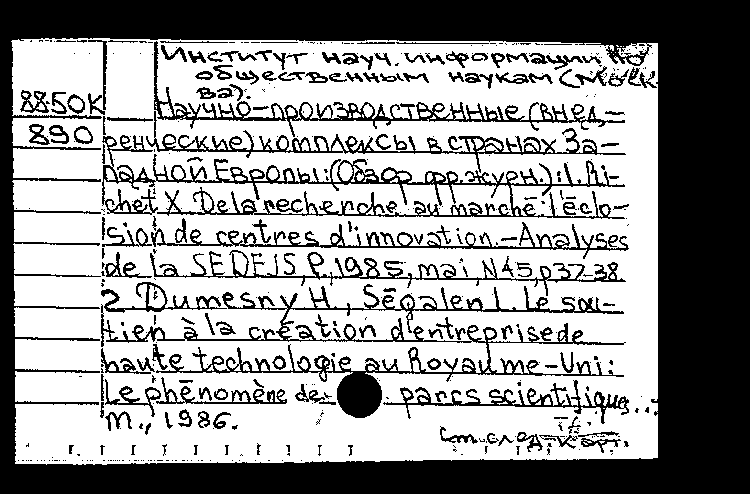 Институт науч. информации по
общественным наукам (Моск
ва).
8850К Научно-производственные (внед-
890 ренческие) комплексы в странах За-
падной Европы: (Обзор фр. журн.): 1. Ri-
chet X. De la recherche au marché: l'éclo-
sion de centres d'innovation.-Analyses
de la SEDEIS, P., 1985, mai, N45, p37-38
2. Dumesny H., Ségalen l. Le sou-
tien à la création d'entreprise de
haute technologie au Royaume-Uni:
Le phénomène de parcs scientifiques...
М., 1986.
См. след. карт.